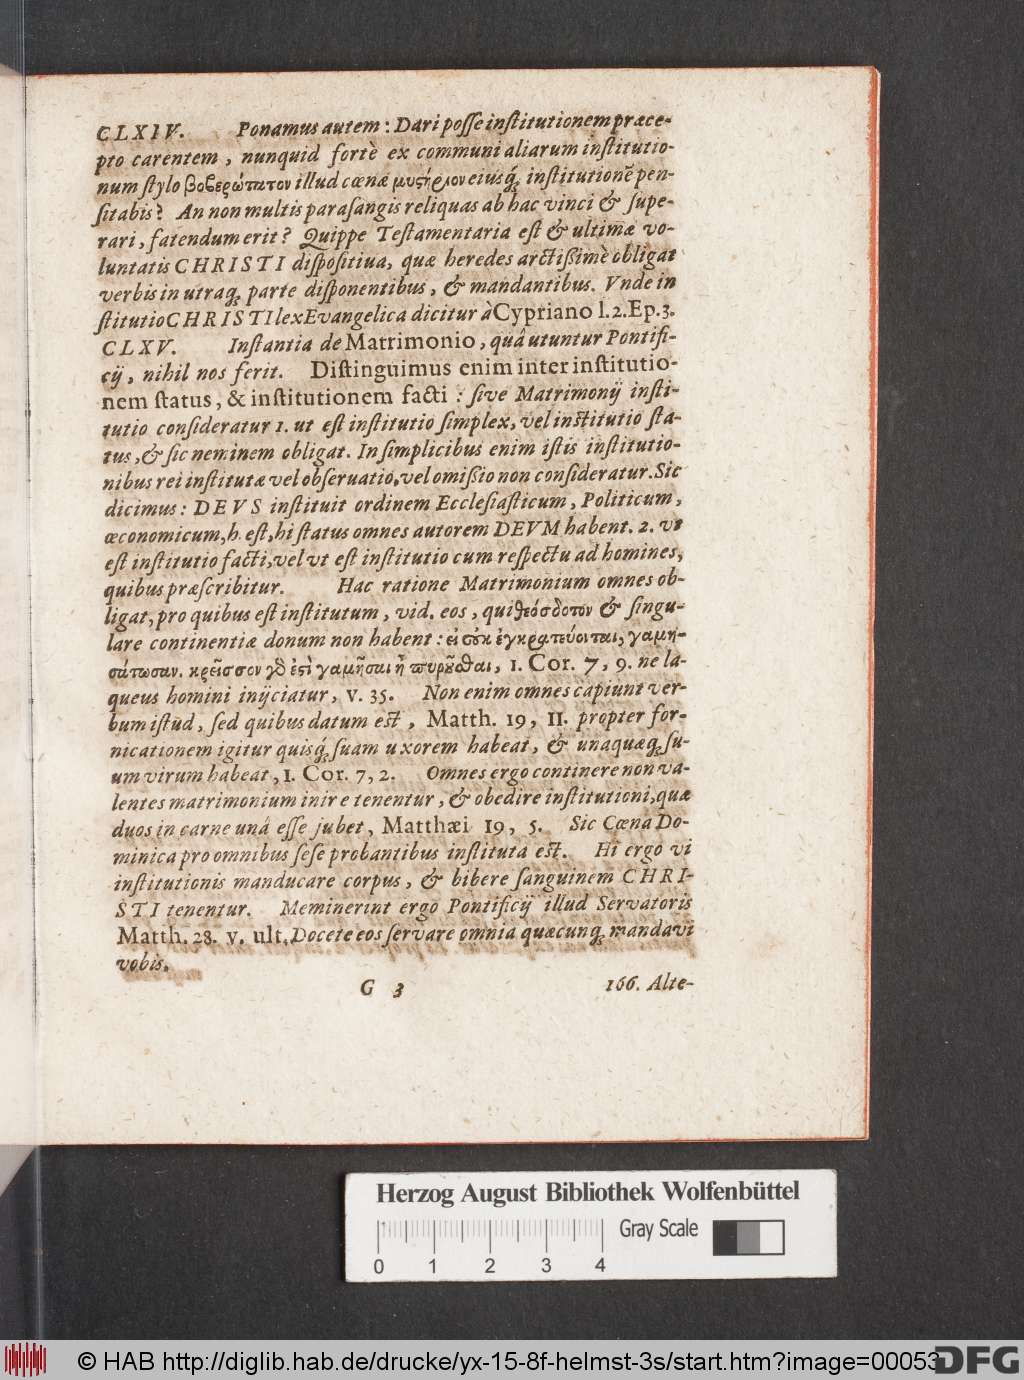 CLXIV. Ponamus autem: Dari posse institutionem præce-
pto carentem, nunquid fortè ex communi aliarum institutio-
num stylo illud cœnæ eiusq́; institutionẽ pen-
sitabis? An non multis parasangis reliquas ab hac vinci & supe-
rari, fatendum erit? Quippe Testamentaria est & ultimæ vo-
luntatis CHRISTI dispositiua, quæ heredes arctißimè obligat
verbis in utraq; parte disponentibus, & mandantibus. Vnde in
stitutio CHRISTI lex Evangelica dicitur à Cypriano l.2.Ep.3.
CLXV. Instantia de Matrimonio, quâ utuntur Pontifi-
cij, nihil nos ferit. Distinguimus enim inter institutio-
nem status, & institutionem facti: sive Matrimonij insti-
tutio consideratur 1. ut est institutio simplex, vel institutio sta-
tus, & sic neminem obligat. In simplicibus enim istis institutio-
nibus rei institutæ vel obseruatio, vel omißio non consideratur. Sic
dicimus: DEVS instituit ordinem Ecclesiasticum, Politicum,
œconomicum, h. est, hi status omnes autorem DEVM habent. 2. vt
est institutio facti, vel vt est institutio cum respectu ad homines,
quibus præscribitur. Hac ratione Matrimonium omnes ob-
ligat, pro quibus est institutum, vid. eos, qui θεόσδοτον & singu-
lare continentiæ donum non habent: εἰ οὐκ ἐγκρατεύονται, γαμη-
σάτωσαν. κρεῖσσον γὸ ἐστὶ γαμῆσαι ἢ πυροῦσθαι, 1. Cor. 7, 9. ne la-
queus homini inijciatur, v. 35. Non enim omnes capiunt ver-
bum istud, sed quibus datum est, Matth. 19, 11. propter for-
nicationem igitur quisq́; suam uxorem habeat, & unaquæq; su-
um virum habeat, 1. Cor. 7, 2. Omnes ergo continere non va-
lentes matrimonium inire tenentur, & obedire institutioni, quæ
duos in carne unâ esse jubet, Matthæi 19, 5. Sic Cœna Do-
minica pro omnibus sese probantibus instituta est. Hi ergo vi
institutionis manducare corpus, & bibere sanguinem CHRI-
STI tenentur. Meminerint ergo Pontificij illud Servatoris
Matth. 28. v. ult. Docete eos servare omnia quæcunq; mandavi
vobis.
G 3 166. Alte-
Herzog August Bibliothek Wolfenbüttel
Gray Scale
0 1 2 3 4
© HAB http://diglib.hab.de/drucke/yx-15-8f-helmst-3s/start.htm?image=00053
DFG